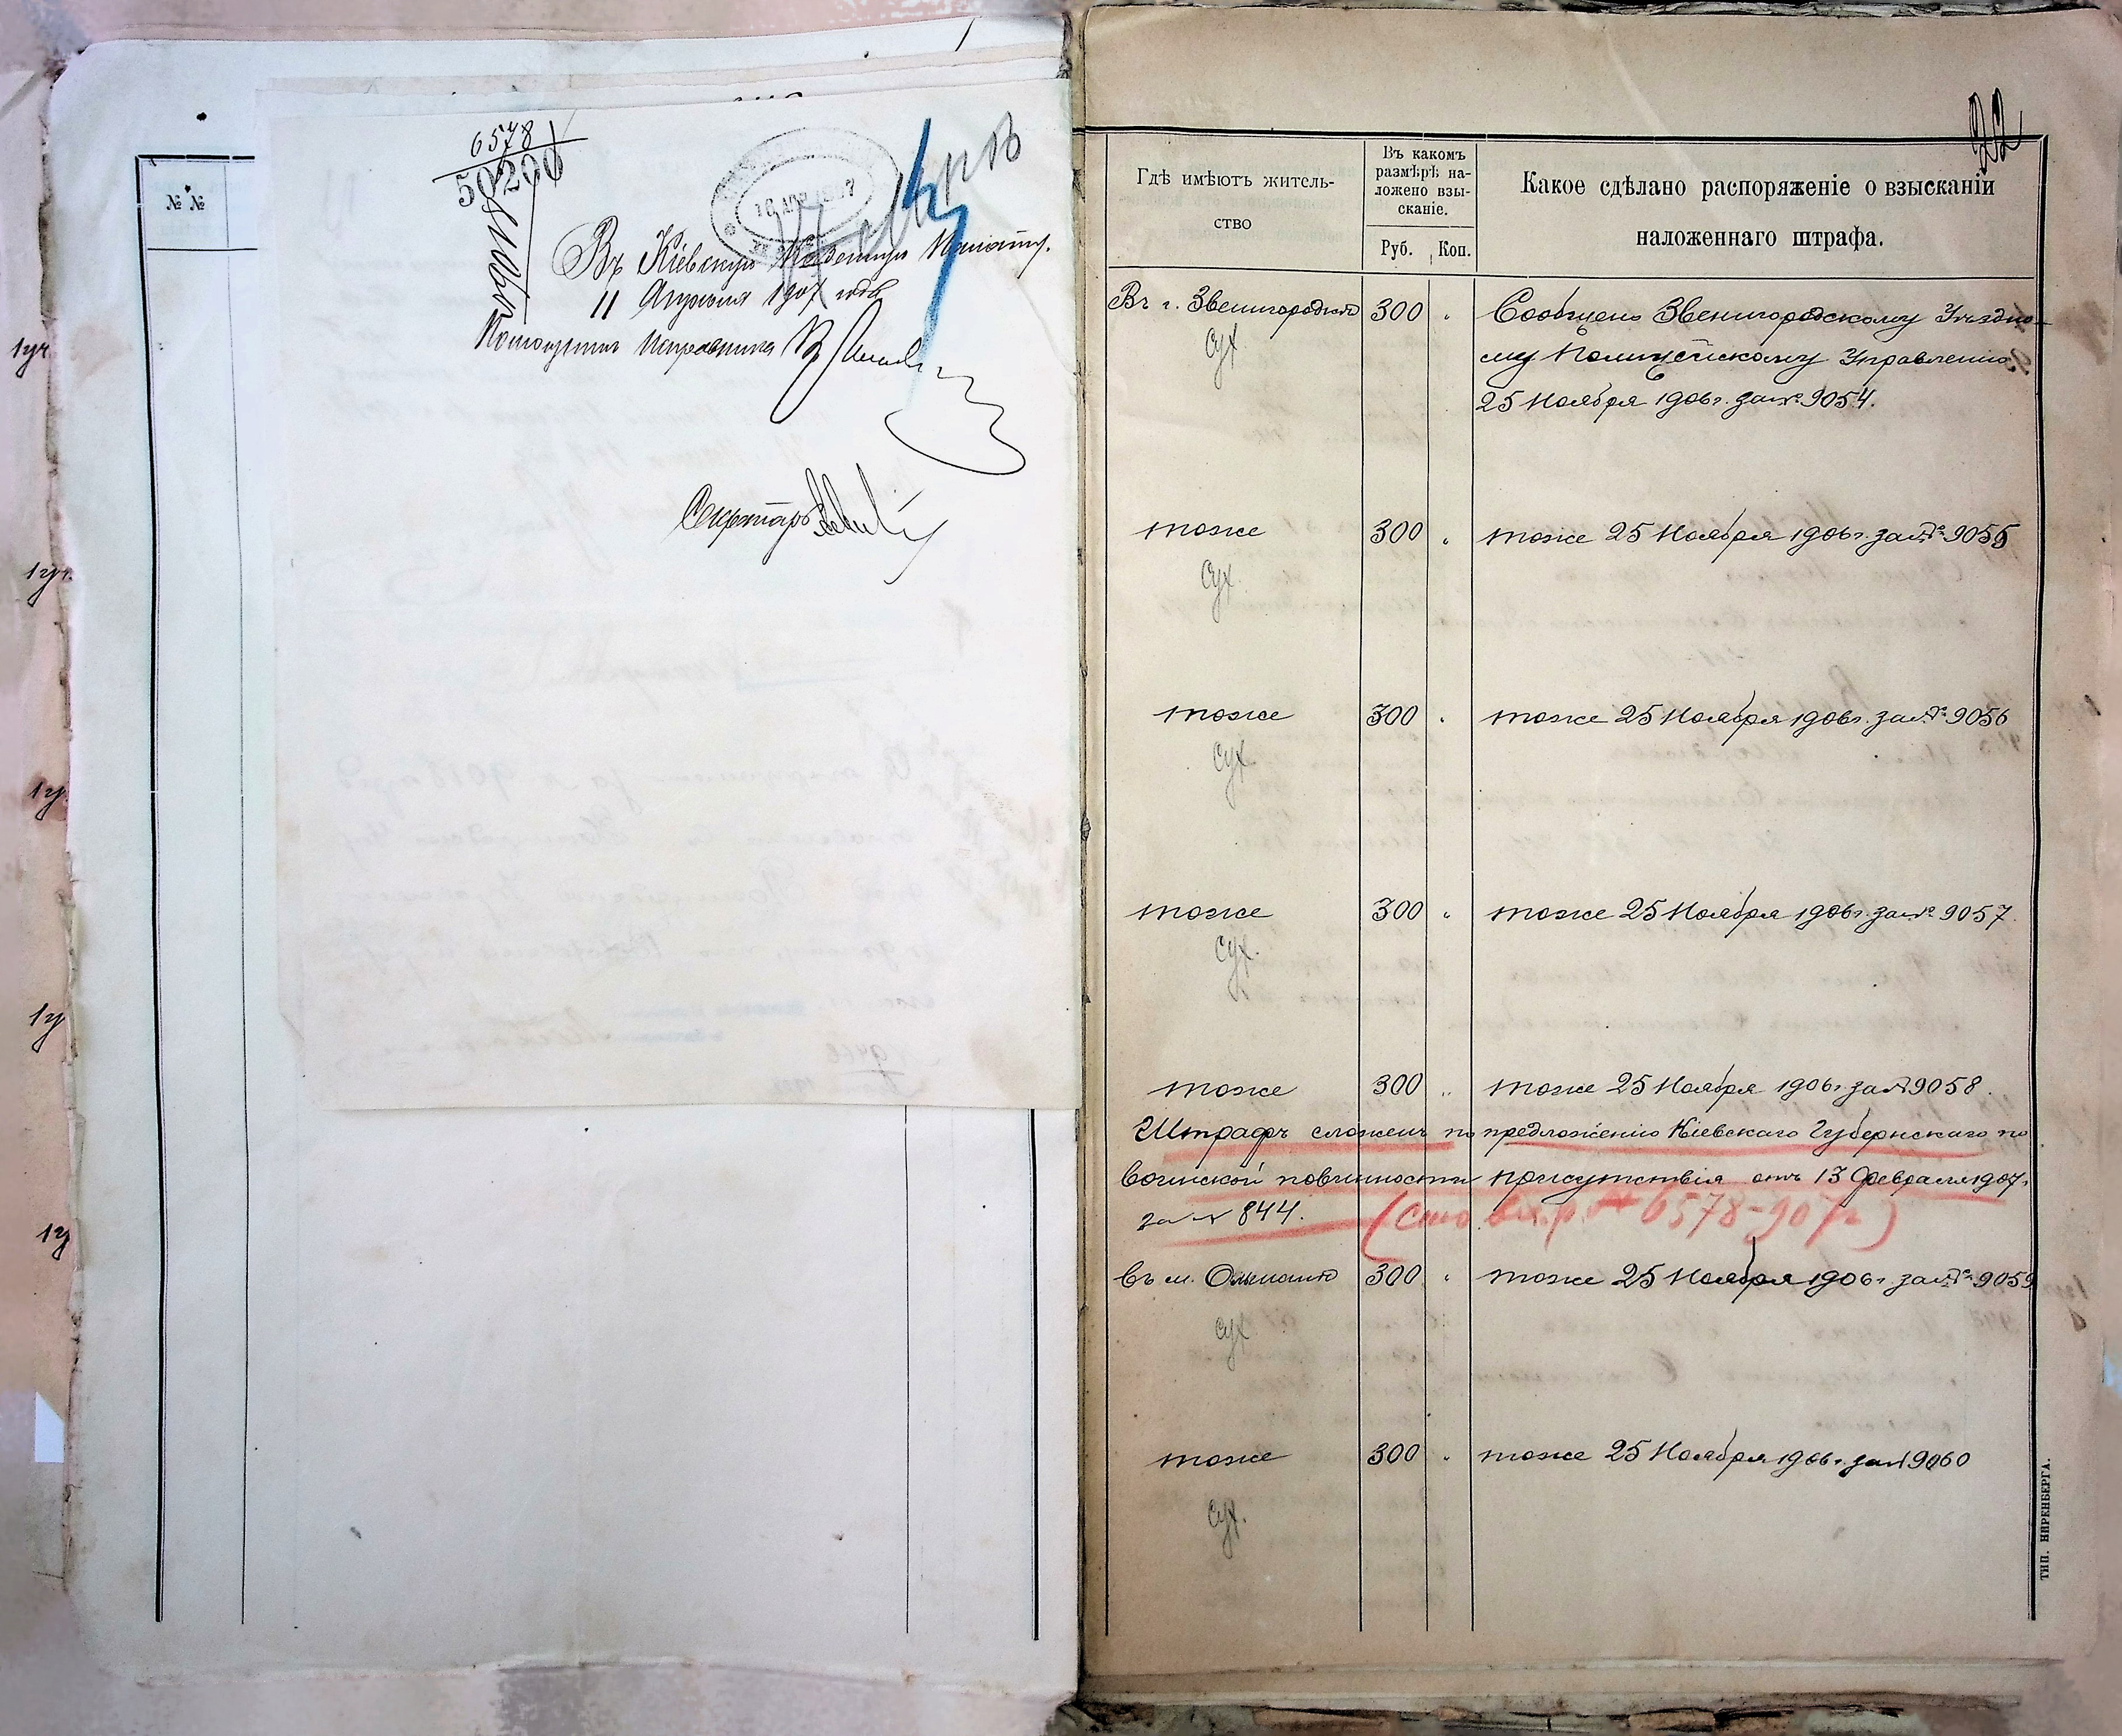 1
6578
50200
Въ Кіевскую Казенную Палату.
11 Апрѣля 1907 года
Помощникъ Исправника
Секретарь
№ №
1уч.
1уч.
1у.
1у
1у
22
Гдѣ имѣютъ житель-
ство
Въ какомъ
размѣрѣ на-
ложено взы-
сканіе.
Руб. Коп.
Какое сдѣлано распоряженіе о взысканіи
наложеннаго штрафа.
Въ г. Звенигородкѣ 300 „ Сообщено Звенигородскому Уѣздно-
му Полицейскому Управленію
25 Ноября 1906 г. за № 9054.
сух.
тоже 300 „ тоже 25 Ноября 1906 г. за № 9055
сух.
тоже 300 „ тоже 25 Ноября 1906 г. за № 9056
сух.
тоже 300 „ тоже 25 Ноября 1906 г. за № 9057
сух.
тоже 300 „ тоже 25 Ноября 1906 г. за № 9058.
Штрафъ сложенъ по предложенію Кіевскаго Губернскаго по
воинской повинности присутствія отъ 13 Февраля 1907 г.
за № 844.
6578-907 г)
въ м. Ольшанѣ 300 „ тоже 25 Ноября 1906 г. за № 9059
сух.
тоже 300 „ тоже 25 Ноября 1906 г. за № 9060
сух.
ТИП. НИРЕНБЕРГА.